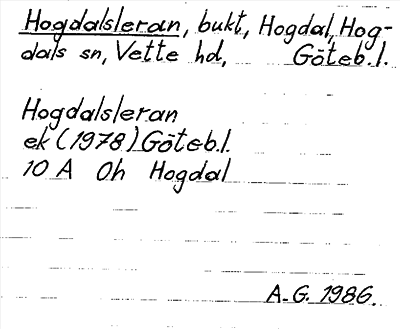 Hogdalsleran, bukt, Hogdal, Hog-
dals sn, Vette hd, Göteb.l.
Hogdalsleran
ek (1978) Göteb.l.
10 A 0h Hogdal
A.G. 1986.